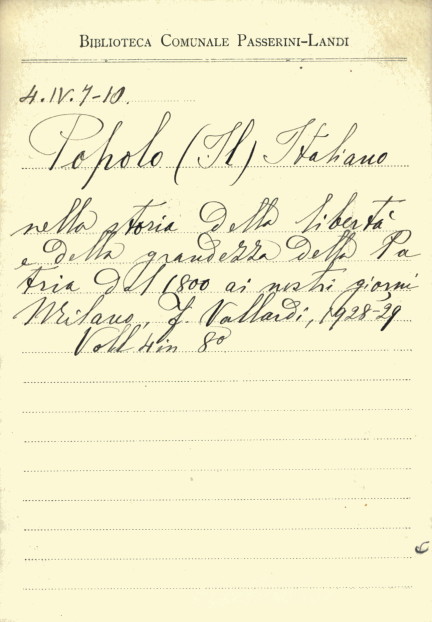 BIBLIOTECA COMUNALE PASSERINI-LANDI
4.IV.7-10.
Popolo (Il) Italiano
nella storia della libertà
e della grandezza della Pa
tria dal 1800 ai nostri giorni
Milano, F. Vallardi, 1928-29
Voll 4 in 8º